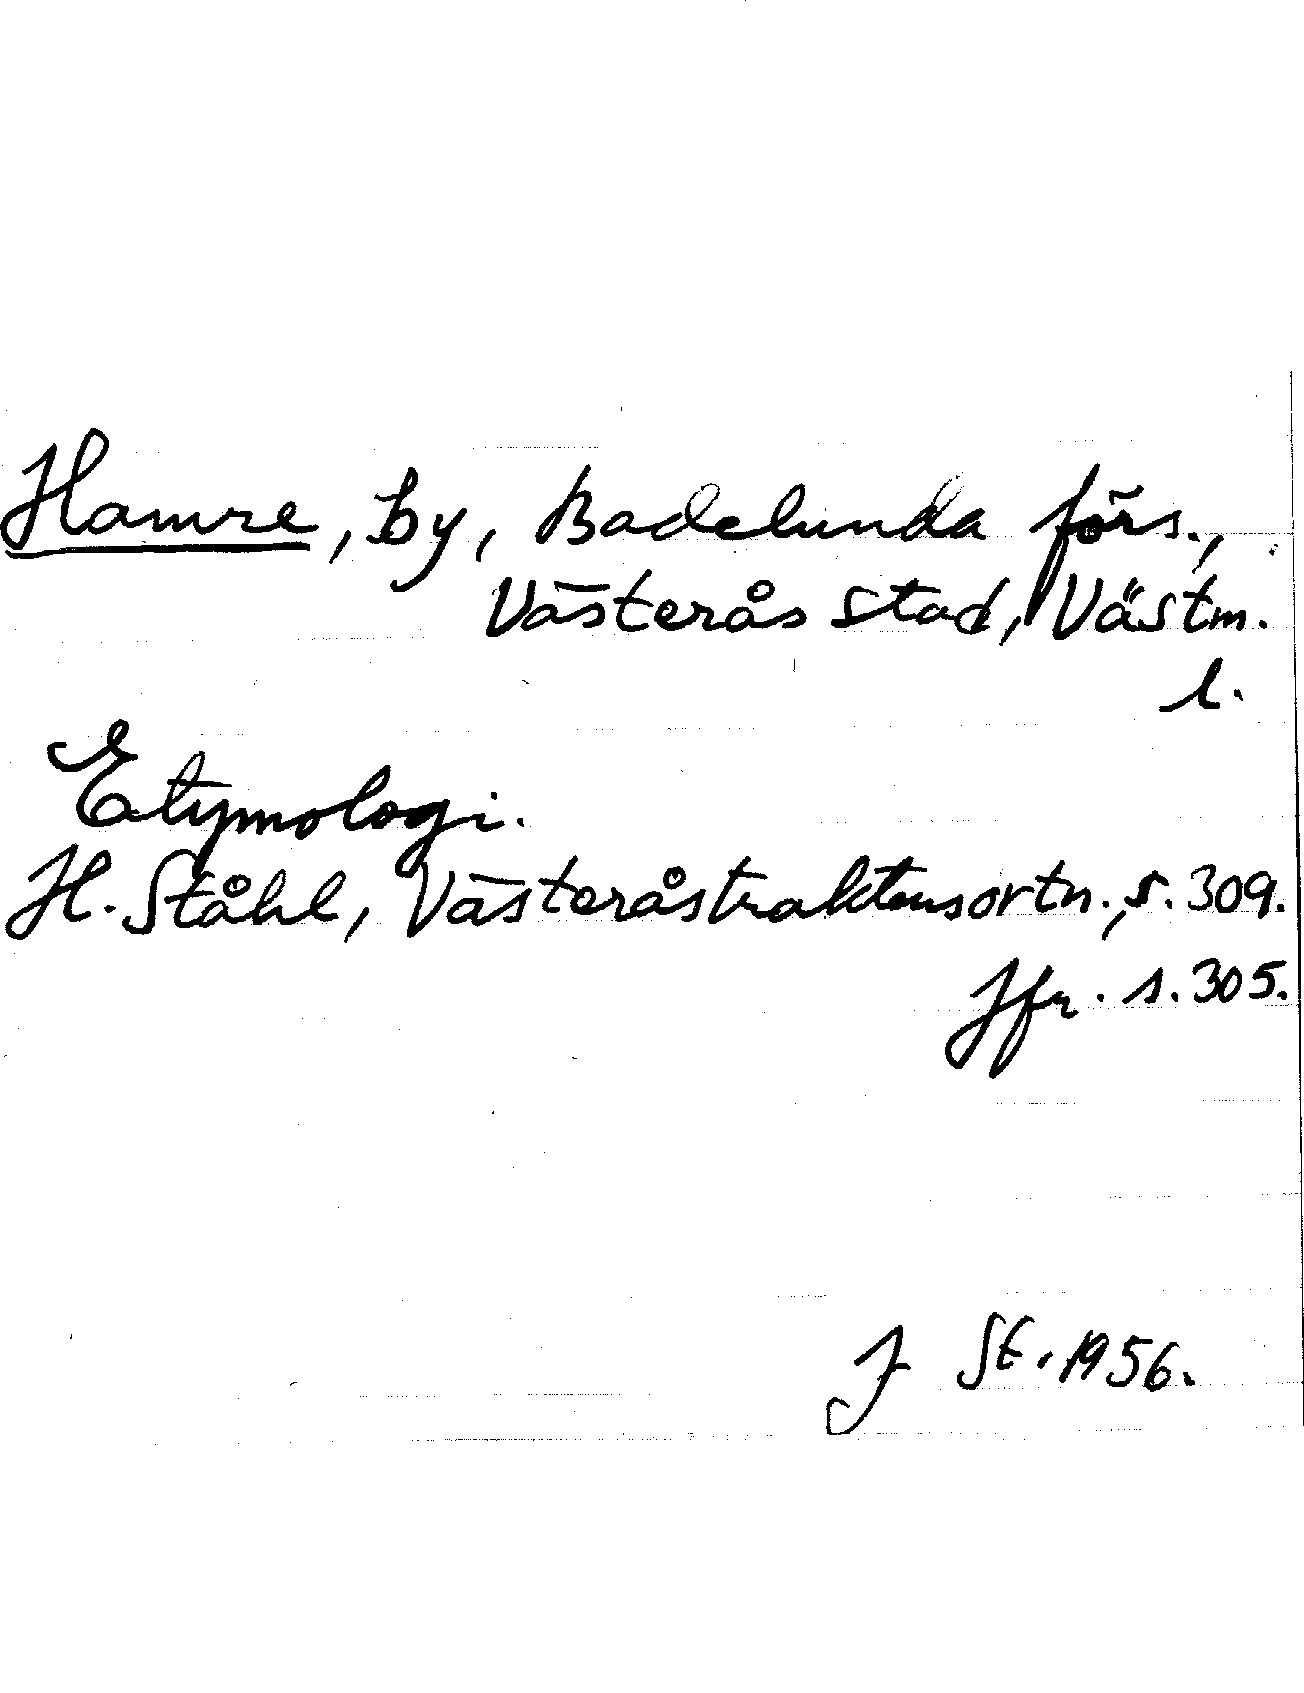 Hamre, by, Badelunda förs.,
Västerås stad, Västm.
l.
Etymologi.
H. Ståhl, Västeråstraktens ortn., s. 309.
Jfr. s. 305.
J St. 1956.